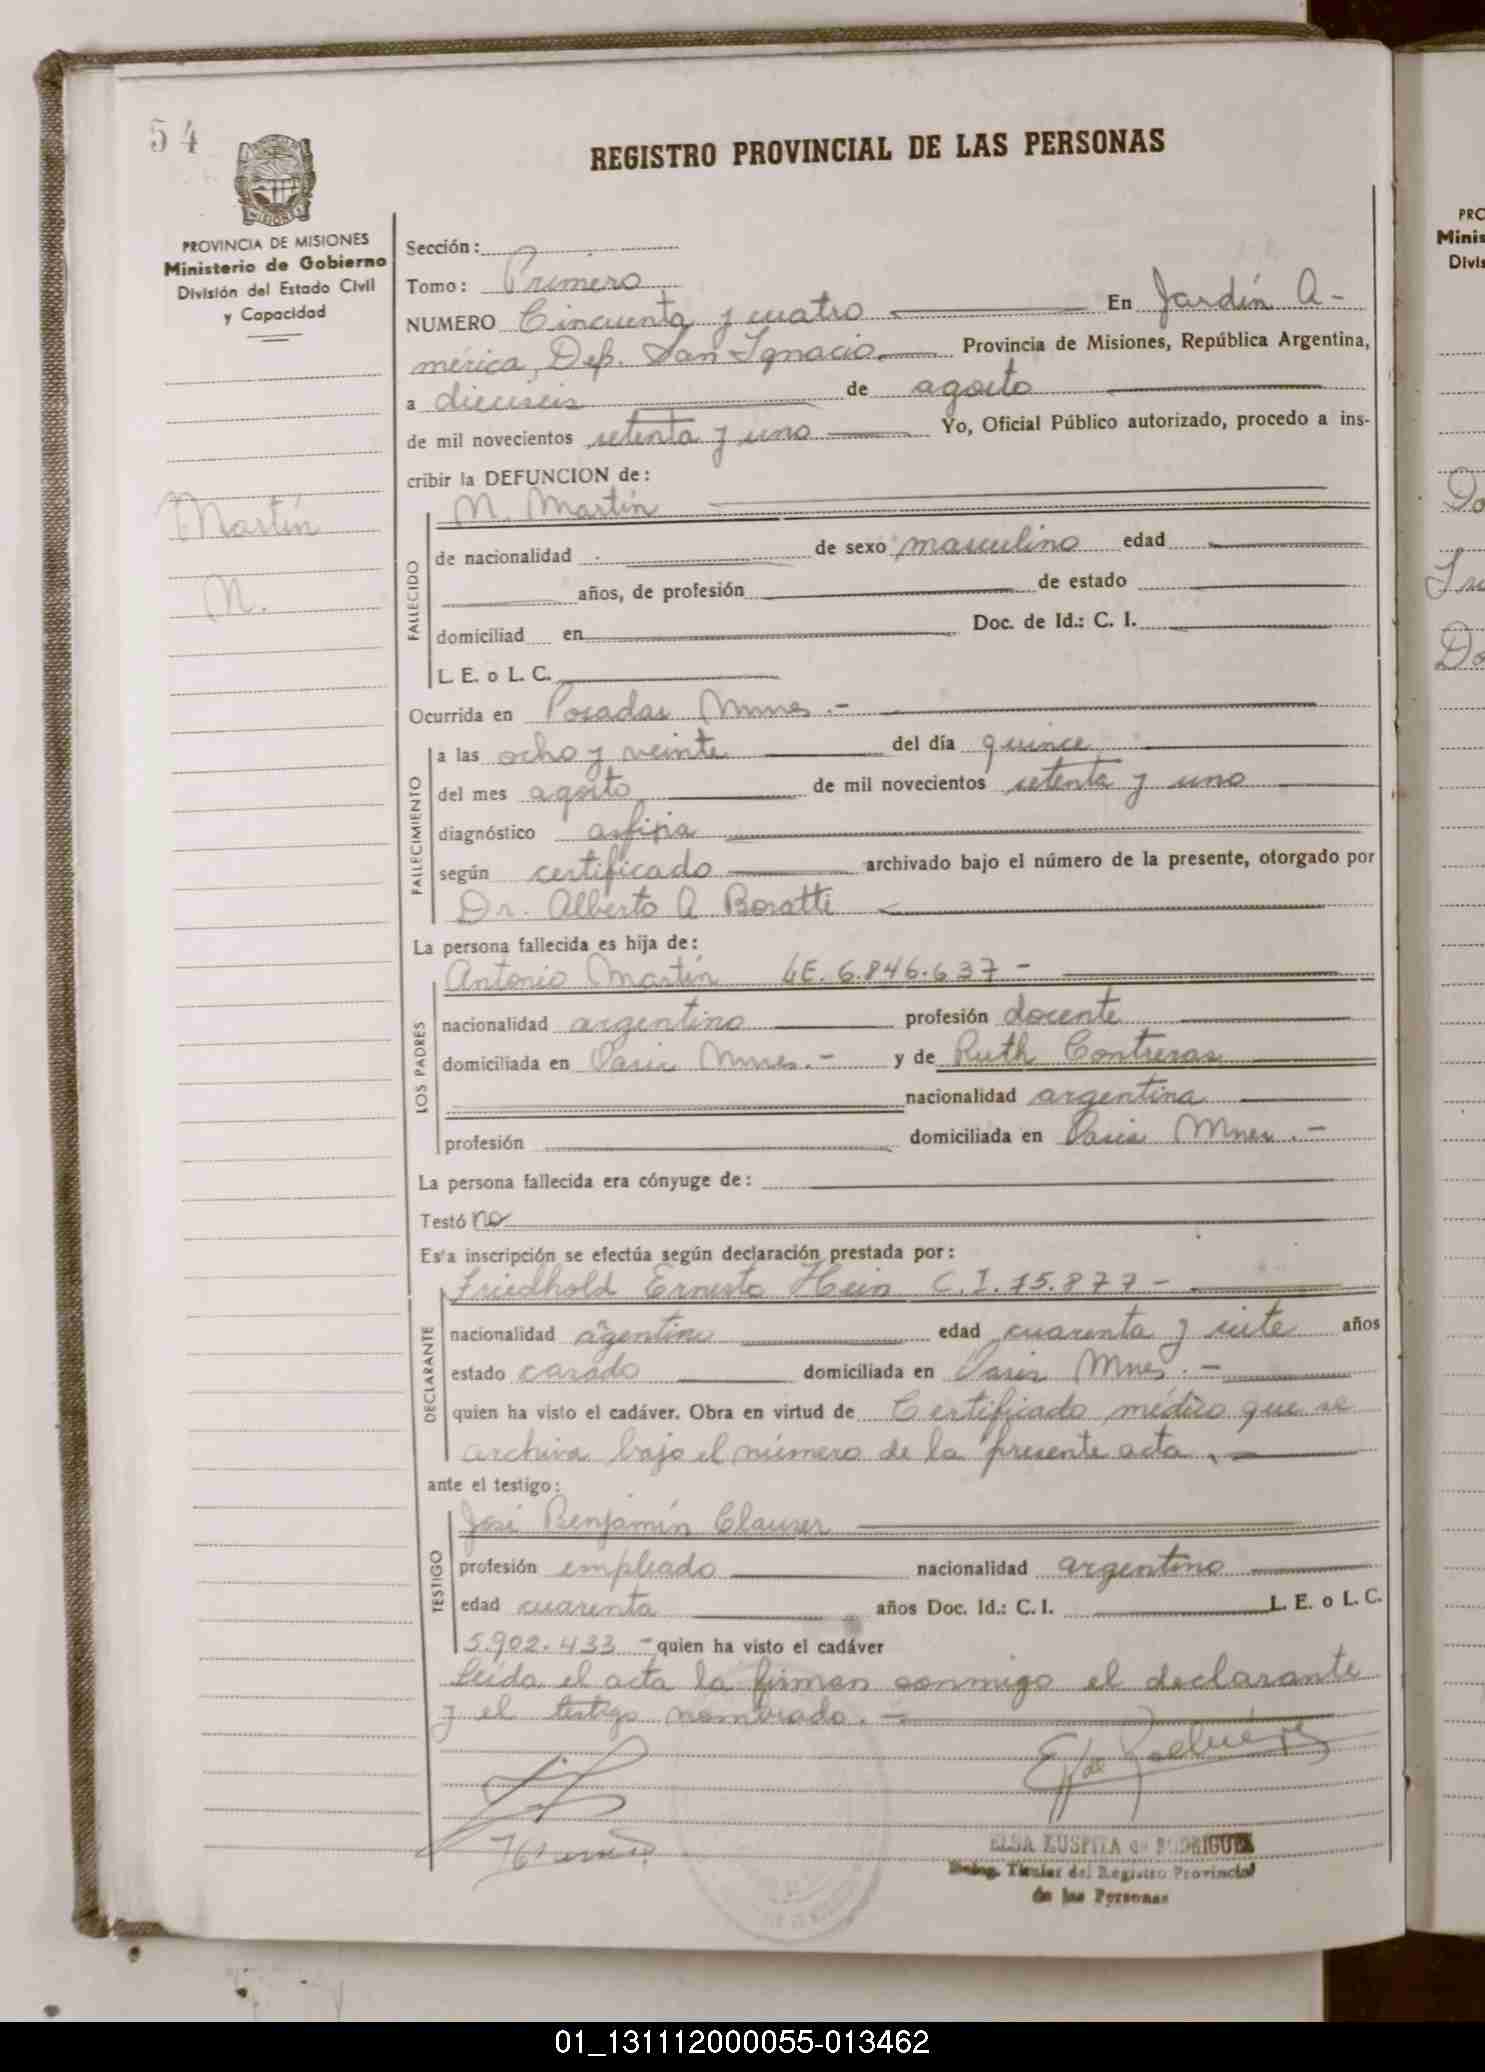 54
REGISTRO PROVINCIAL DE LAS PERSONAS
MISIONES
PROVINCIA DE MISIONES
Ministerio de Gobierno
División del Estado Civil
y Capacidad
Martín
N.
Sección:
Tomo: Primero
NUMERO Cincuenta y cuatro En Jardín A-
mérica, Dep. San Ignacio. Provincia de Misiones, República Argentina,
a dieciseis de agosto
de mil novecientos setenta y uno Yo, Oficial Público autorizado, procedo a ins-
cribir la DEFUNCION de:
N. Martín
FALLECIDO
de nacionalidad de sexo masculino edad
años, de profesión de estado
domiciliad en Doc. de Id.: C. I.
L. E. o L. C.
Ocurrida en Posadas Mnes.-
FALLECIMIENTO
a las ocho y veinte del día quince
del mes agosto de mil novecientos setenta y uno
diagnóstico asfixia
según certificado archivado bajo el número de la presente, otorgado por
Dr. Alberto A
La persona fallecida es hija de:
Antonio Martín LE. 6.846.637 -
LOS PADRES
nacionalidad argentino profesión docente
domiciliada en Oasis Mnes.- y de Ruth Contreras
nacionalidad argentina
profesión domiciliada en Oasis Mnes.-
La persona fallecida era cónyuge de:
Testó no
Esta inscripción se efectúa según declaración prestada por:
Friedhold Ernesto Hein C.I. 75.877 -
DECLARANTE
nacionalidad argentino edad cuarenta y siete años
estado casado domiciliada en Oasis Mnes.-
quien ha visto el cadáver. Obra en virtud de Certificado médico que se
archiva bajo el número de la presente acta.
ante el testigo:
José Benjamín Clauser
TESTIGO
profesión empleado nacionalidad argentino
edad cuarenta años Doc. Id.: C. I. L. E. o L. C.
5.902.433 - quien ha visto el cadáver
Leída el acta la firman conmigo el declarante
y el testigo nombrado.-
de RODRIGUEZ
Deleg. Titular del Registro Provincial
de las Personas
PRO
Minis
Divis
Do
Do
01_131112000055-013462